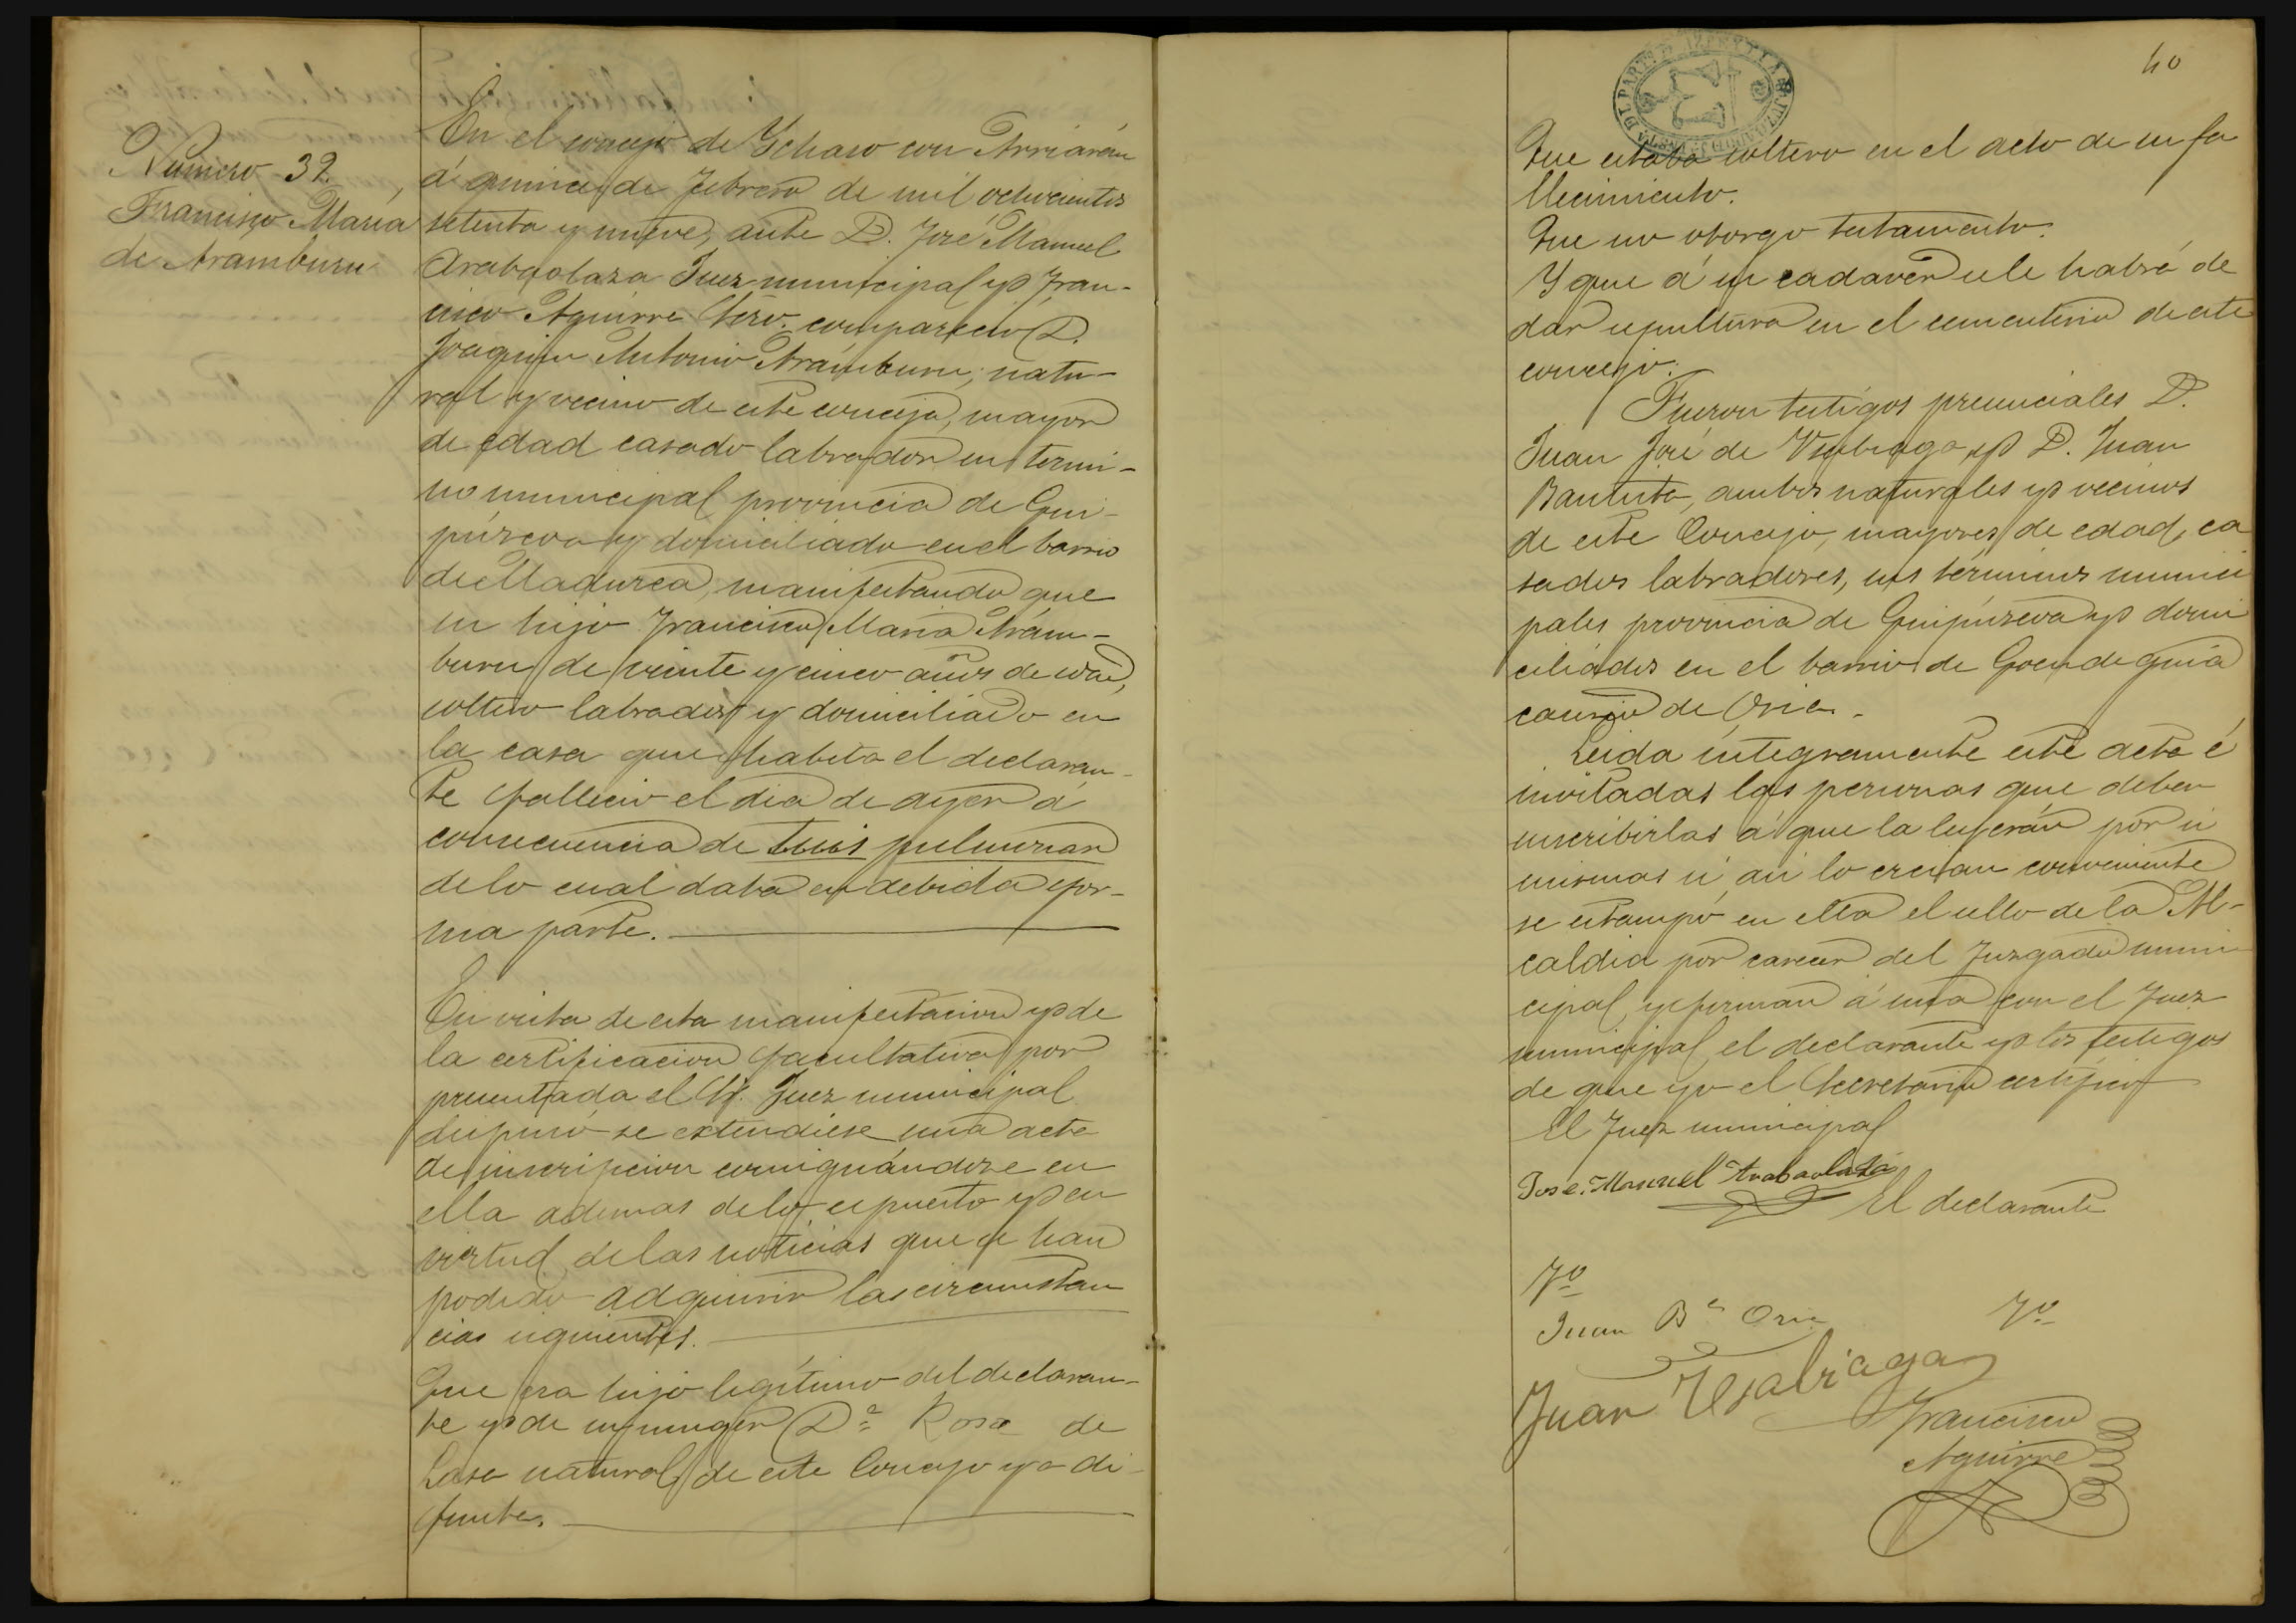 Numero 32
Francisco Maria
de Aramburu
En el concejo de Ychaso con Arriarán
á quince de Febrero de mil ochocientos
setenta y nueve, ante D. José Manuel
Arabaolaza Juez municipal y Fran-
cisco Aguirre Srio. comparecio D.
Joaquin Antonio Aramburu, natu-
ral y vecino de este concejo, mayor
de edad casado labrador su termi-
no municipal provincia de Gui-
púzcoa y domiciliado en el barrio
de manifestando que
su hijo Francisco Maria Aram-
buru de veinte y cinco años de edad,
soltero labrador y domiciliado en
la casa que habita el declaran-
te fallecio el dia de ayer á
consecuencia de tisis pulmonar
de lo cual daba en debida for-
ma parte.
En vista de esta manifestacion y de
la certificacion facultativa por
presentada el Sr. Juez municipal
dispuso se extendiese una acta
de inscripcion consignándose en
ella ademas de lo espuesto y en
virtud de las noticias que se han
podido adquirir las circunstan
cias siguientes.
Que era hijo legítimo del declaran-
te y de su muger Dª Rosa de
Lasa natural de este Concejo ya di-
funta.
40
Que estaba soltero en el acto de su fa
llecimiento.
Que no otorgo testamento.
Y que á su cadaver se le habrá de
dar sepultura en el cementerio de este
concejo.
Fueron testigos presenciales D.
Juan José de y D. Juan
Bautista, ambos naturales y vecinos
de este Concejo, mayores de edad, ca
sados labradores, sus términos munici
pales provincia de Guipúzcoa y domi
ciliados en el barrio de
de Oria.
Leida íntegramente este acta é
invitadas las personas que deben
suscribirlas á que la leyeran por si
mismas si asi lo creian conveniente
se estampó en ella el sello de la Al-
caldia por carecer del Juzgado muni
cipal, y firman á una con el Juez
municipal, el declarante y los testigos
de que yo el Secretario certifico
El Juez municipal
José Manuel Arabaolaza
El declarante
Tº
Juan Bª Oria
Tº
Juan
Francisco
Aguirre